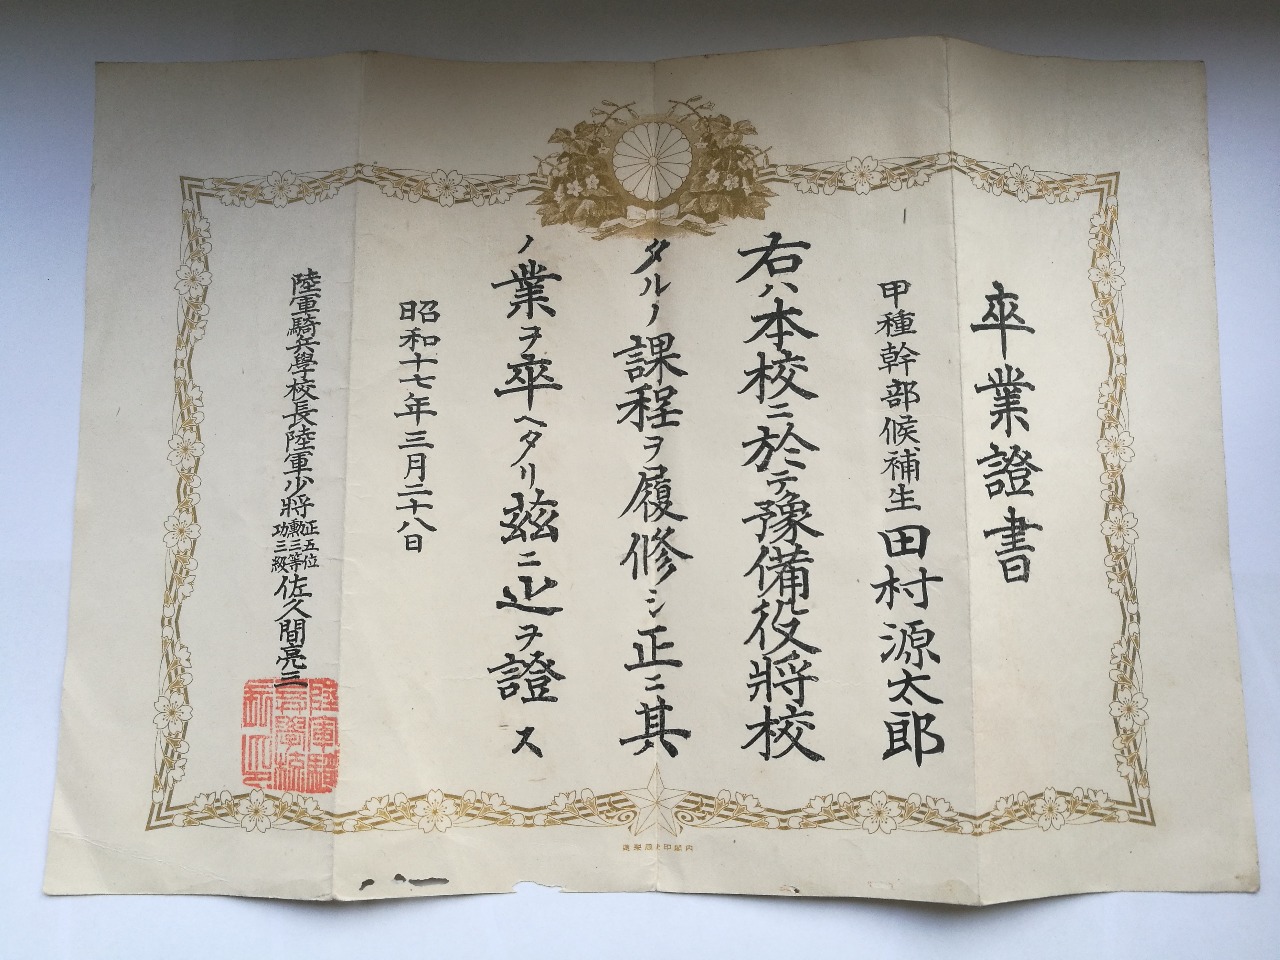 卒業證書
甲種幹部候補生 田村源太郎
右ハ本校ニ於テ豫備役將校
タルノ課程ヲ履修シ正ニ其
ノ業ヲ卒ヘタリ茲ニ之ヲ證ス
昭和十七年三月二十八日
陸軍騎兵學校長陸軍少將正五位勲三等功三級佐久間亮三
陸軍騎兵學校
內閣印刷局製造